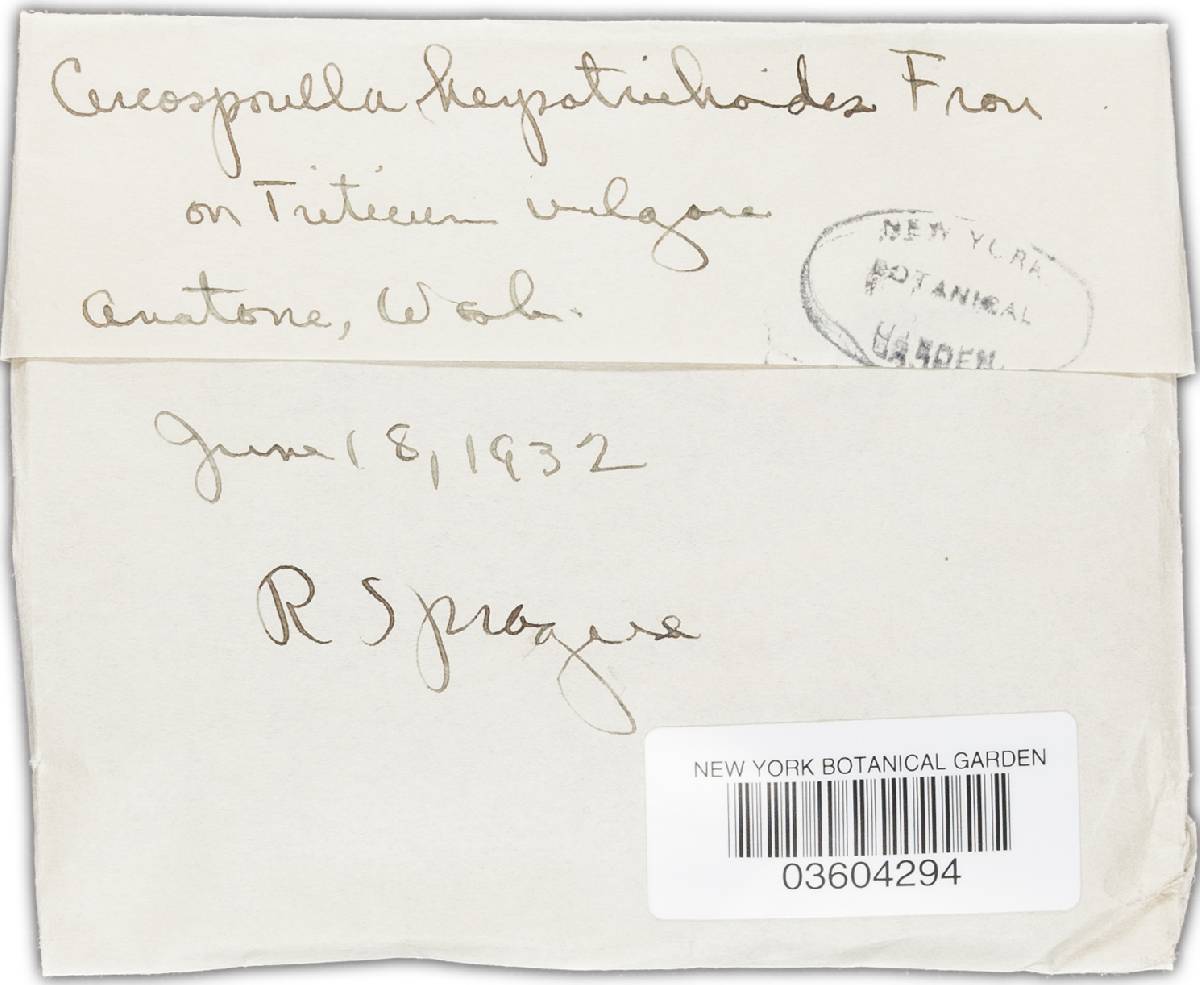 Cercosporella herpotrichoides Fron
on Triticum vulgare
Anatone, Wash.
NEW YORK
BOTANICAL
GARDEN.
June 18, 1932
R Sprague
NEW YORK BOTANICAL GARDEN
03604294